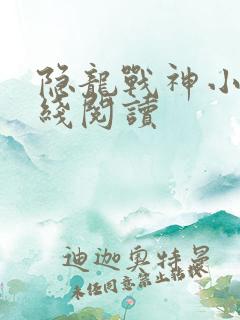 隐龍戰神小
綫閱讀
迪迦奥特曼
未经同意禁止转载